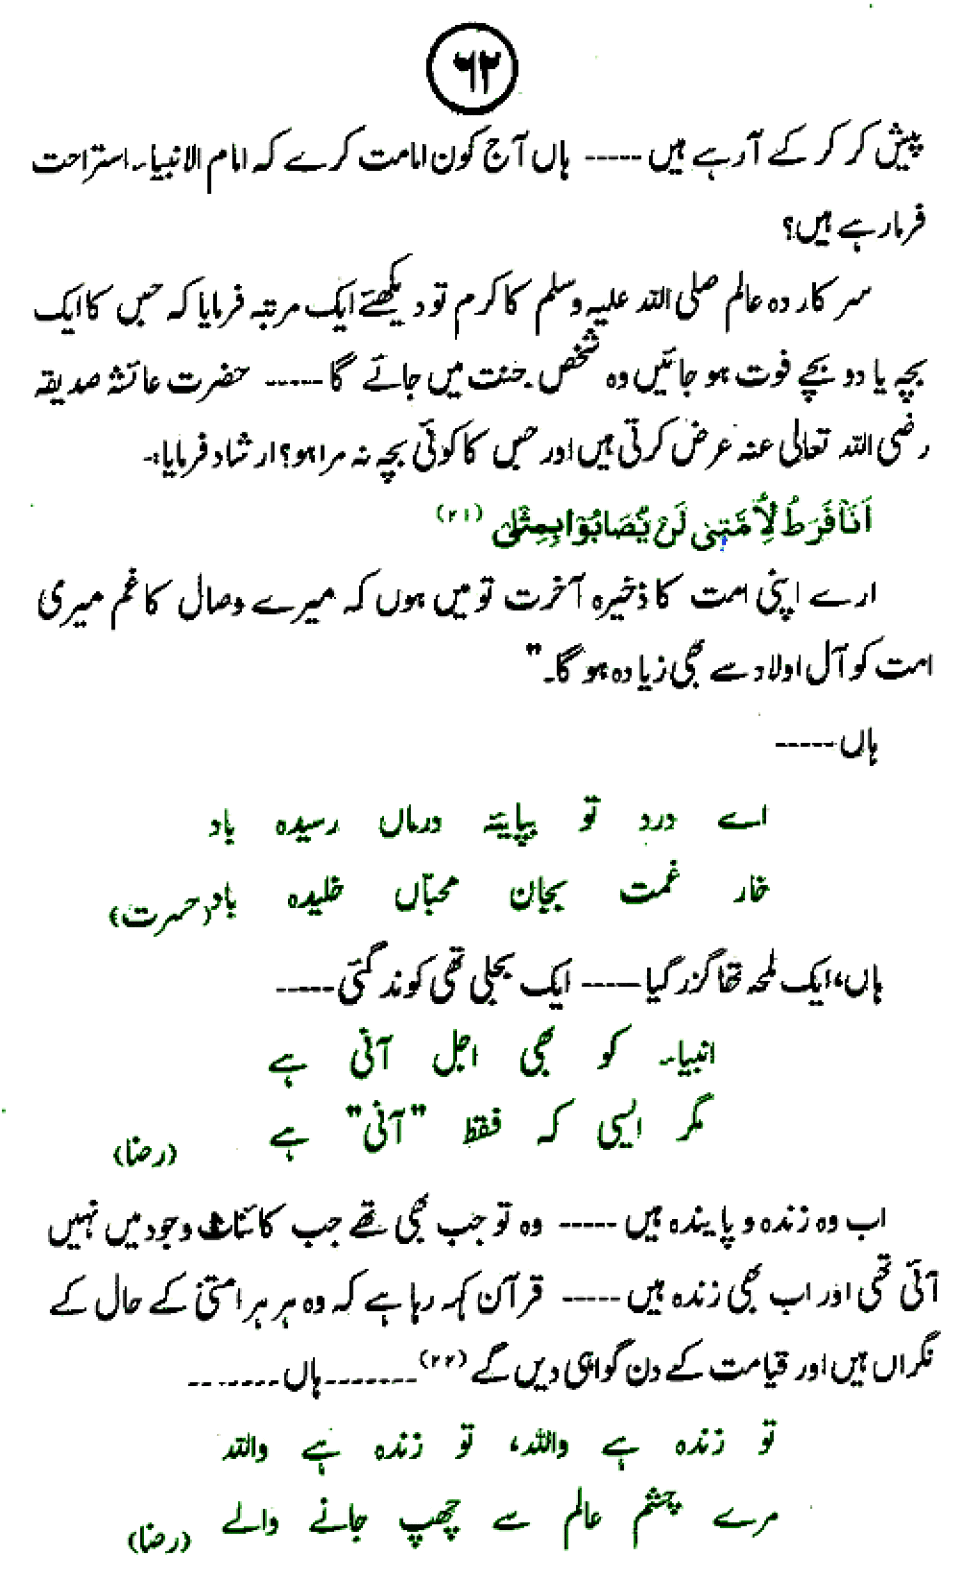 ۶۲
پیش کر کر کے آ رہے ہیں ----- ہاں آج کون امامت کرے کہ امام الانبیاء استراحت
فرما رہے ہیں؟
سرکار دو عالم صلی اللہ علیہ وسلم کا کرم تو دیکھئے ایک مرتبہ فرمایا کہ جس کا ایک
بچہ یا دو بچے فوت ہو جائیں وہ شخص جنت میں جائے گا ----- حضرت عائشہ صدیقہ
رضی اللہ تعالی عنہ عرض کرتی ہیں اور جس کا کوئی بچہ نہ مرا ہو؟ ارشاد فرمایا:-
اَنَا فَرَطُ لِاُمَّتِیْ لَنْ یُصَابُوْا بِمِثْلِیْ (۲۱)
ارے اپنی امت کا ذخیرہ آخرت تو میں ہوں کہ میرے وصال کا غم میری
امت کو آل اولاد سے بھی زیادہ ہو گا۔"
ہاں -----
اے درد تو بپایئہ درماں رسیدہ باد
خار غمت بجان محبّاں خلیدہ باد (حسرت)
ہاں، ایک لمحہ تھا گزر گیا ----- ایک بجلی تھی کوند گئی -----
انبیاء کو بھی اجل آنی ہے
مگر ایسی کہ فقط "آنی" ہے (رضا)
اب وہ زندہ و پایندہ ہیں ----- وہ تو جب بھی تھے جب کائنات وجود میں نہیں
آئی تھی اور اب بھی زندہ ہیں ----- قرآن کہہ رہا ہے کہ وہ ہر ہر امتی کے حال کے
نگراں ہیں اور قیامت کے دن گواہی دیں گے (۲۲) -------- ہاں --------
تو زندہ ہے واللہ، تو زندہ ہے واللہ
مرے چشم عالم سے چھپ جانے والے (رضا)